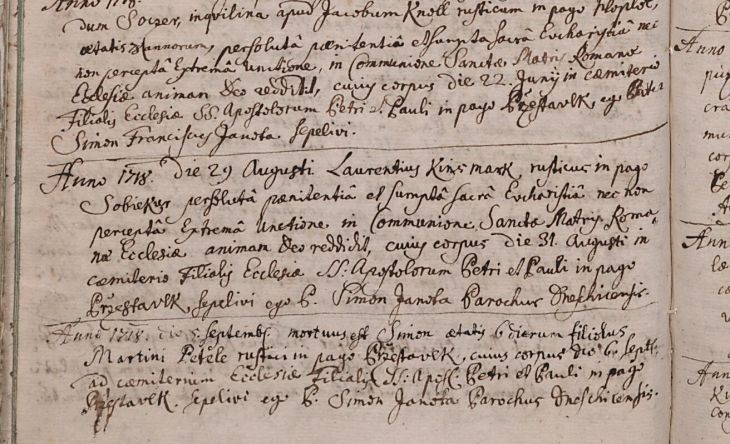 Anno 1718.
dum Solzer, inquilina apud Jacobum Knoll rusticum in pago
ætatis annorum, persolutâ pænitentiâ et sumptâ sacrâ Eucharistiâ nec
non perceptâ Extremâ Unctione, in Communione Sanctæ Matris Romanæ
Ecclesiæ animam Deo reddidit, cuius corpus die 22. Junij in cæmiterio
Filialis Ecclesiæ SS. Apostolorum Petri et Pauli in pago Przestavlk, ego Pater
Simon Franciscus Janota sepelivi.
Anno 1718. die 29 Augusti Laurentius Kinsmark, rusticus in pago
Sobiekur persolutâ pænitentiâ et sumptâ sacrâ Eucharistiâ nec non
perceptâ Extremâ Unctione in Communione Sancta Matris Roma-
næ Ecclesiæ animam Deo reddidit, cuius corpus die 31. Augusti in
cæmiterio Filialis Ecclesiæ SS: Apostolorum Petri et Pauli in pago
Przestavlk, sepelivi ego P. Simon Janota Parochus Dneschicensis.
Anno 1718. die 5 Septembr. mortuus est Simon ætatis 6 dierum filiolus
Martini Petele rustici in pago Przestavlk, cuius corpus die 6. Septb:
ad cæmiterium Ecclesiæ Filialis SS: Apost. Petri et Pauli in pago
Przestavlk. sepelivi ego P. Simon Janota Parochus Dneschicensis.
Anno
Anno
Anno